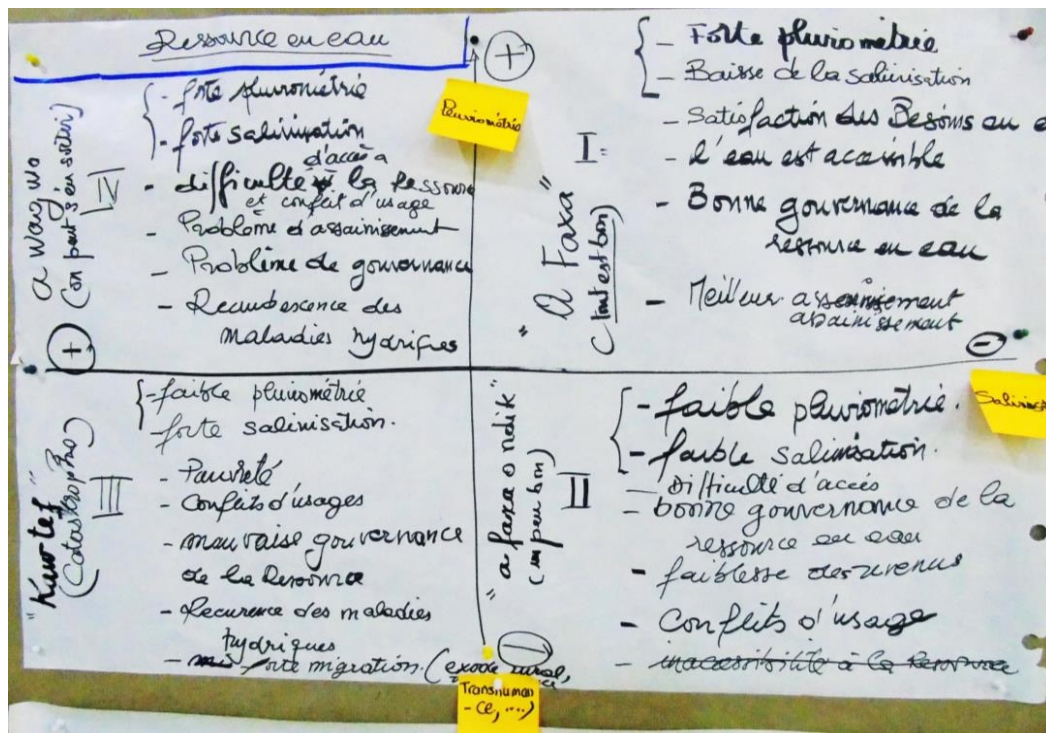 Ressource en eau
+
Pluviométrie
"a wagwa
(on peut s'en sortir)
IV
+
- forte pluviométrie
- forte salinisation
- difficulté d'accès à la Ressource
et conflit d'usage
- Problème d'assainissement
- Problème de gouvernance
- Recrudescence des
maladies hydriques
I
"a Faxa"
(tout est bon)
- Forte pluviométrie
- Baisse de la salinisation
- Satisfaction des Besoins en e
- l'eau est accessible
- Bonne gouvernance de la
ressource en eau
- Meilleur
assainissement
-
Salinisa
"Kaw tef"
(Catastrophe)
III
- faible pluviométrie
- forte salinisation.
- Pauvreté
- Conflits d'usages
- mauvaise gouvernance
de la Ressource
- Recurence des maladies
hydriques
- forte migration. (exode rural,
Transhuman
-ce, ....)
-
"a faxa o ndik"
(un peu bon)
II
- faible pluviométrie.
- faible salinisation.
- Difficulté d'accès
- bonne gouvernance de la
ressource en eau
- faiblesse des revenus
- Conflits d'usage
- inaccessibilité à la Ressource